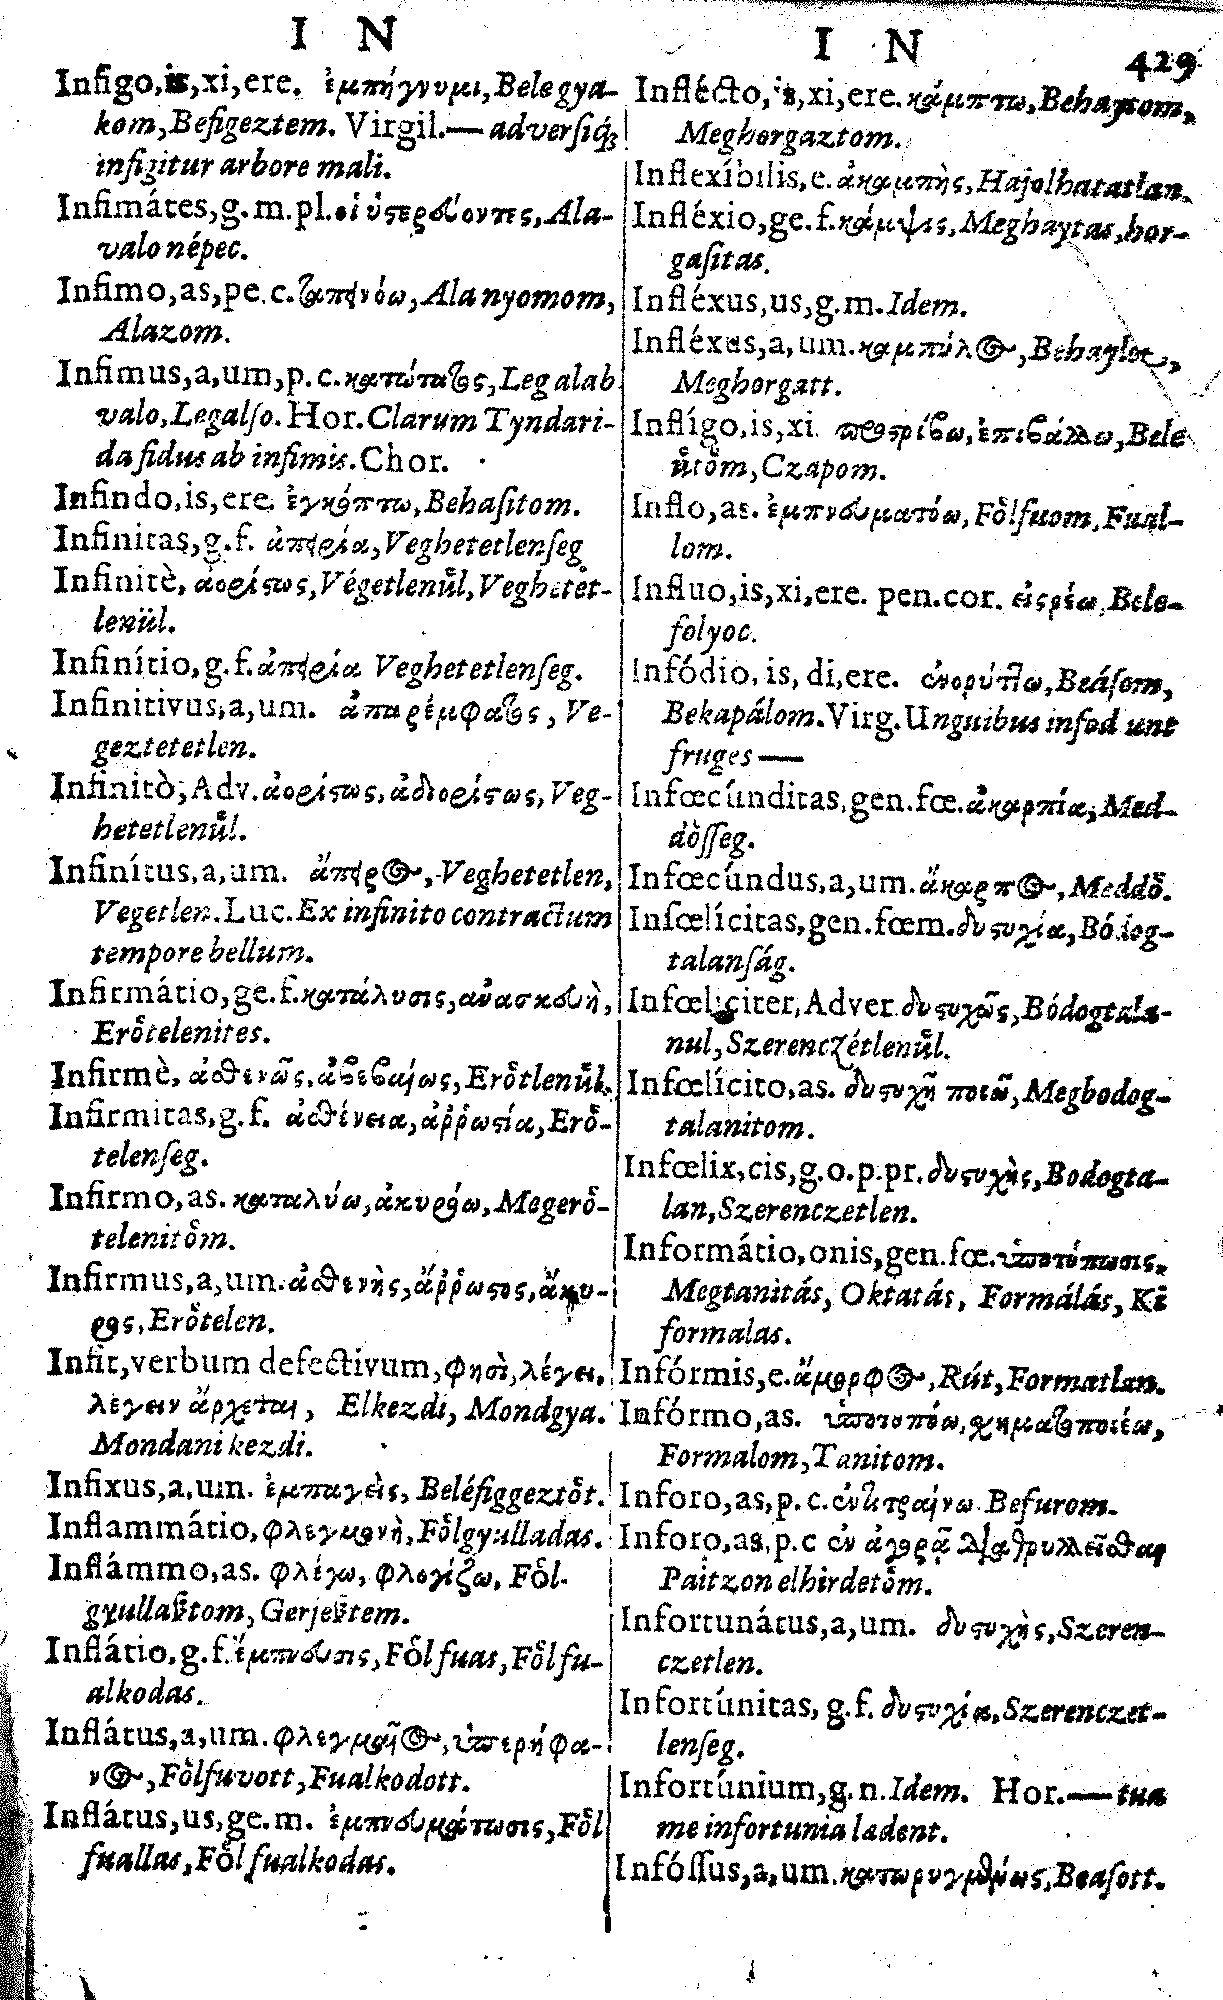 I N
Infigo,is,xi,ere. ἐμπήγνυμι, Bele gya-
kom, Befigeztem. Virgil.— adversiq́;
infigitur arbore mali.
Infimátes, g. m. pl. οἱ ὑςερεύοντες, Ala-
valo népec.
Infimo, as, pe. c. ταπεινόω, Ala nyomom,
Alazom.
Infimus, a, um, p. c. κατώτατος, Leg alab
valo, Legalſo. Hor. Clarum Tyndari-
da fidus ab infimis. Chor.
Infindo, is, ere. ἐγκόπτω, Behaſitom.
Infinitas, g. f. ἀπειρία, Veghetetlenſeg
Infinitè, ἀορίςως, Végetlenűl, Veghetet-
lenül.
Infinítio, g. f. ἀπειρία Veghetetlenſeg.
Infinitivus, a, um. ἀπαρέμφατος, Ve-
geztetetlen.
Infinitò, Adv. ἀορίςως, ἀδιορίςως, Veg-
hetetlenűl.
Infinítus, a, um. ἄπειρος, Veghetetlen,
Vegetlen. Luc. Ex infinito contractum
tempore bellum.
Infirmátio, ge. f. κατάλυσις, ἀνασκευὴ,
Erőtelenites.
Infirmè, ἀσθενῶς, ἀβεβαίως, Erőtlenűl.
Infirmitas, g. f. ἀσθένεια, ἀῤῥωςία, Erő-
telenſeg.
Infirmo, as. καταλύω, ἀκυρόω, Megerő-
telenitőm.
Infirmus, a, um. ἀσθενὴς, ἄῤῥωςος, ἄκυ-
ρος, Erőtelen.
Infit, verbum defectivum, φησὶ, λέγει,
λέγειν ἄρχεται, Elkezdi, Mondgya.
Mondani kezdi.
Infixus, a, um. ἐμπαγεὶς, Beléfiggeztőt.
Inflammátio, φλεγμονὴ, Főlgyulladas.
Inflámmo, as. φλέγω, φλογίζω, Fől-
gyullaſtom, Gerjeſtem.
Inflátio, g. f. ἔμπνευσις, Főlfuas, Főlfu-
alkodas.
Inflátus, a, um. φλεγμονῆος, ὑπερήφα-
νος, Főlfuvott, Fualkodott.
Inflátus, us, ge. m. ἐμπνευμάτωσις, Fől
fuallas, Fől fualkodas.
I N 429
Infléćto, is, xi, ere. κάμπτω, Behaytom,
Meghorgaztom.
Inflexíbilis, e. ἀκαμπὴς, Hajolhatatlan.
Infléxio, ge. f. κάμψις, Meghaytas, hor-
gaſitas.
Infléxus, us, g. m. Idem.
Infléxus, a, um. καμπύλος, Behaylot,
Meghorgatt.
Inflígo, is, xi. προςρίβω, ἐπιβάλλω, Bele
űtőm, Czapom.
Inflo, as. ἐμπνευματόω, Főlfuom, Fual-
lom.
Influo, is, xi, ere. pen. cor. εἰςρέω, Bele-
folyoc.
Infódio, is, di, ere. ἐνορύττω, Beáſom,
Bekapálom. Virg. Unguibus infod unt
fruges —
Infœcúnditas, gen. fœ. ἀκαρπία, Med-
dőſſeg.
Infœcúndus, a, um. ἄκαρπος, Meddő.
Infœlícitas, gen. fœm. δυςυχία, Bódog-
talanſág.
Infœlíciter, Adver. δυςυχῶς, Bódogtala-
nul, Szerenczétlenűl.
Infœlícito, as. δυςυχῆ ποιῶ, Megbodog-
talanitom.
Infœlix, cis, g. o. p. pr. δυςυχὴς, Bodogta-
lan, Szerenczetlen.
Informátio, onis, gen. fœ. ὑποτύπωσις,
Megtanitás, Oktatás, Formálás, Ki
formalas.
Infórmis, e. ἄμορφος, Rút, Formatlan.
Infórmo, as. ὑποτυπόω, χηματοποιέω,
Formalom, Tanitom.
Inforo, as, p. c. ἐντιτραίνω Befurom.
Inforo, as, p. c ἐν ἀγορᾷ
Paitzon elhirdetőm.
Infortunátus, a, um. δυςυχὴς, Szeren-
czetlen.
Infortúnitas, g. f. δυςυχία, Szerenczet-
lenſeg.
Infortúnium, g. n. Idem. Hor.— tua
me infortunia ladent.
Infóſſus, a, um. κατωρυγμένος, Beaſott.